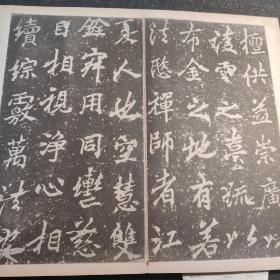 檀供益崇廣以
淩雲之臺疏以
布金之地有若
法愍禪師者江
夏人也空慧雙
銓寂用同轡慈
目相視淨心相
續綜覈萬法安